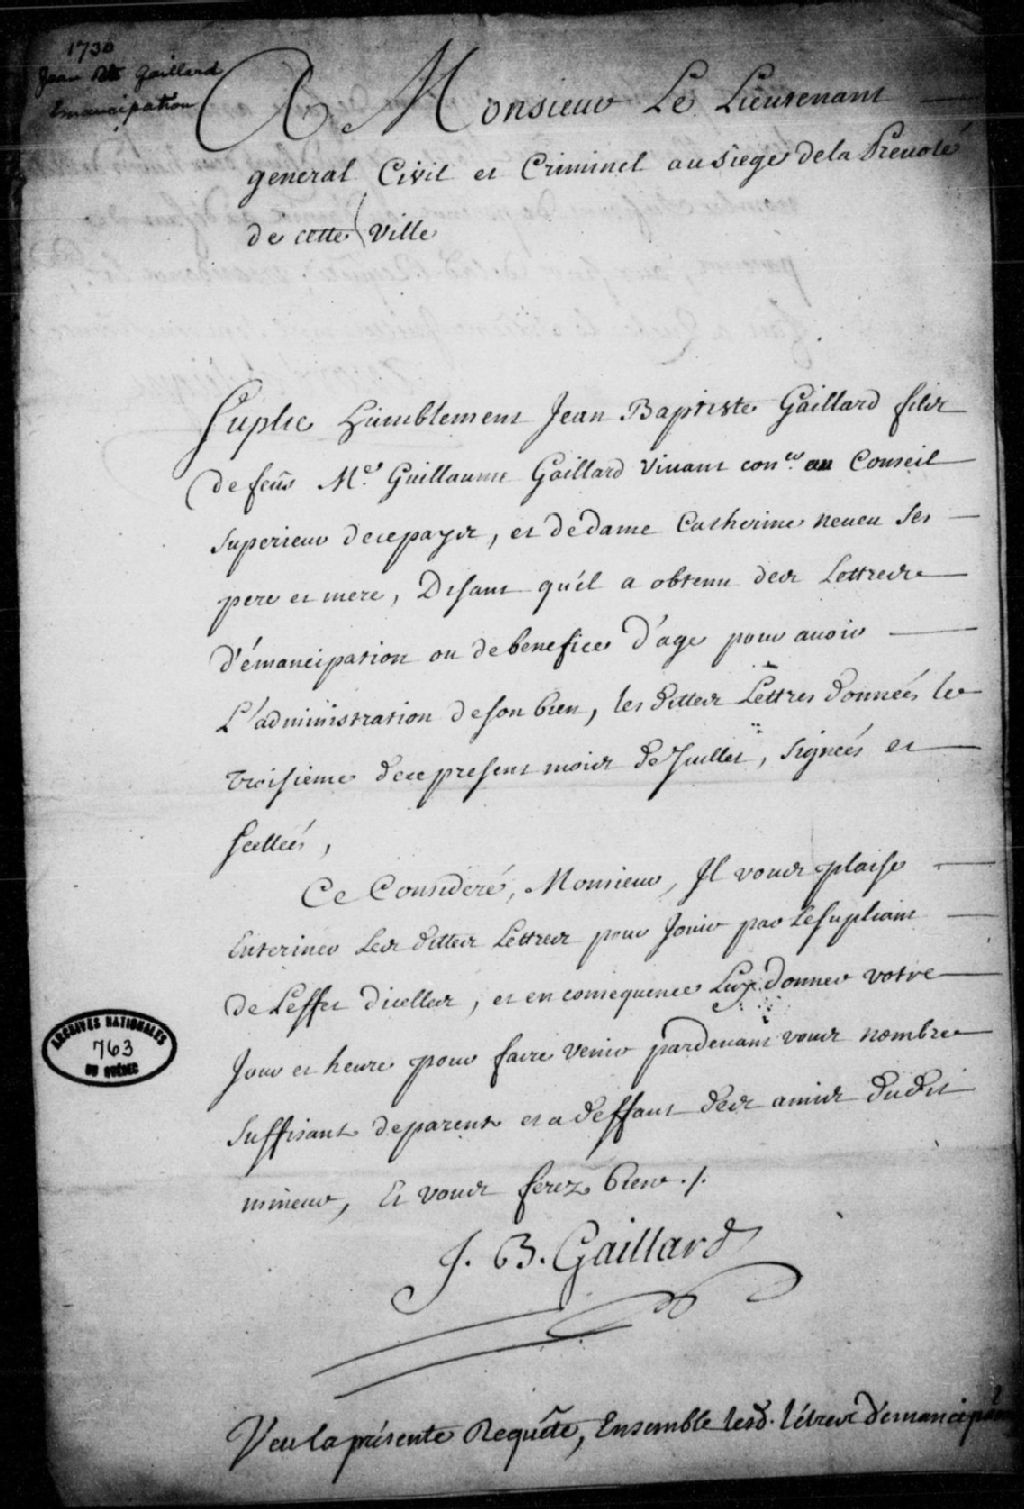 1730
Jean Bte Gaillard
Emancipation
A Monsieur Le Lieutenant
general Civil et Criminel au siege de la Prevoté
de cette Ville
Suplie humblement Jean Baptiste Gaillard fils
de feu Me. Guillaume Gaillard vivant coner. au Conseil
superieur de ce pays, et de dame Catherine neveu ses
pere et mere, Disant qu'il a obtenu des Lettres
d'émancipation ou de benefice d'age pour avoir
L'administration de son bien, les dittes Lettres données le
troisieme de ce present mois de Juillet, signées et
scellées,
Ce Consideré, Monsieur, Il vous plaise
Enteriner Les dittes Lettres pour Jouir par Le supliant
de L'effet d'icelles, et en consequence Luy donner votre
Jour et heure pour faire venir pardevant vous nombre
suffisant de parens et a deffaut des amis dudit
mineur, Et vous ferez bien ./.
J. B. Gaillard
ARCHIVES NATIONALES
763
DU QUÉBEC
Veu la présente Requête, Ensemble lesd. létres d'emancipaon